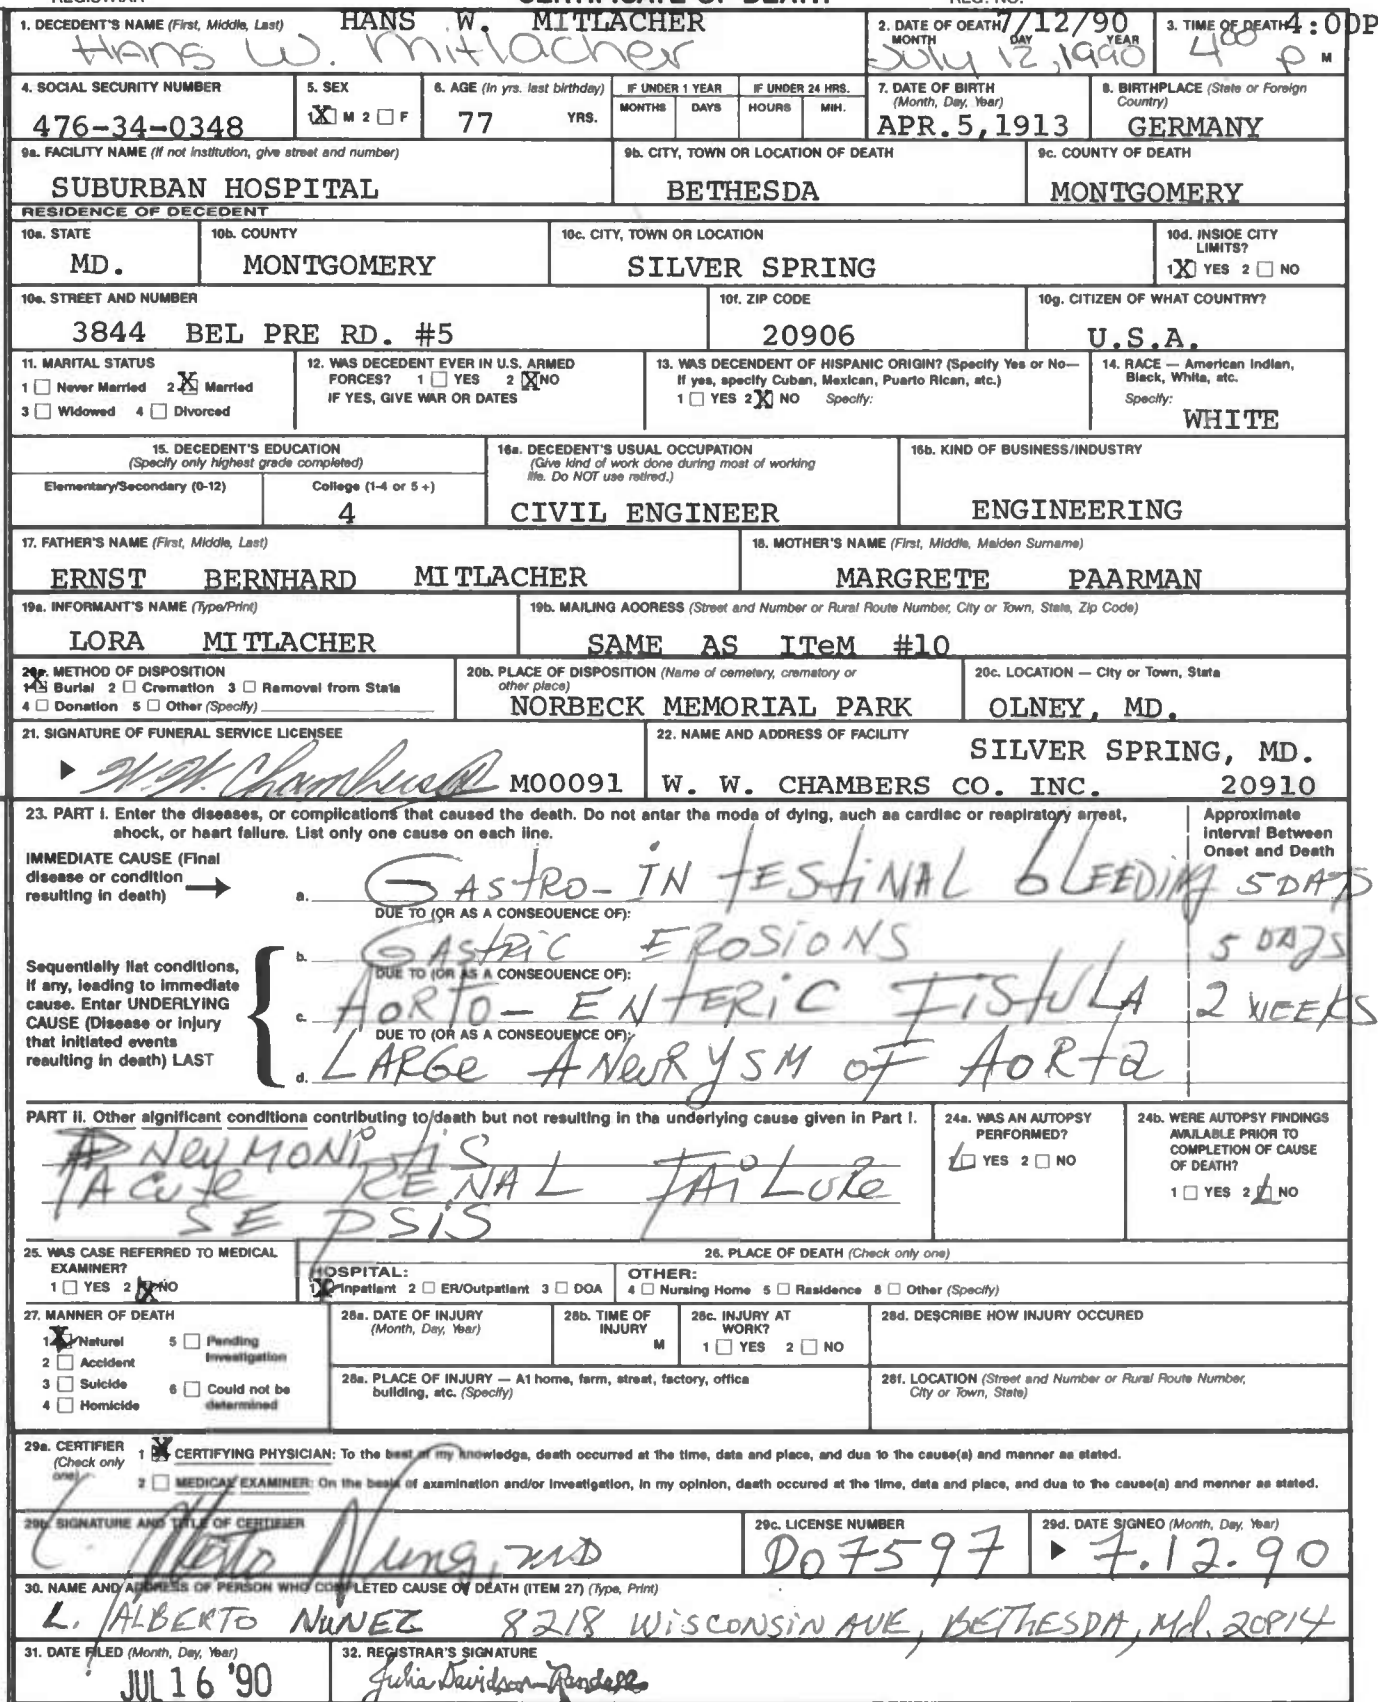 CERTIFICATE OF DEATH
REGISTRAR REG. NO.
1. DECEDENT'S NAME (First, Middle, Last) HANS W. MITLACHER
Hans W. Mitlacher
2. DATE OF DEATH 7/12/90
MONTH DAY YEAR
July 12, 1990
3. TIME OF DEATH 4:00P
4 00 P M
4. SOCIAL SECURITY NUMBER
476-34-0348
5. SEX
1 X M 2 ☐ F
6. AGE (In yrs. last birthday)
77 YRS.
IF UNDER 1 YEAR
MONTHS DAYS
IF UNDER 24 HRS.
HOURS MIH.
7. DATE OF BIRTH
(Month, Day, Year)
APR.5,1913
8. BIRTHPLACE (State or Foreign
Country)
GERMANY
9a. FACILITY NAME (If not institution, give street and number)
SUBURBAN HOSPITAL
9b. CITY, TOWN OR LOCATION OF DEATH
BETHESDA
9c. COUNTY OF DEATH
MONTGOMERY
RESIDENCE OF DECEDENT
10a. STATE
MD.
10b. COUNTY
MONTGOMERY
10c. CITY, TOWN OR LOCATION
SILVER SPRING
10d. INSIDE CITY
LIMITS?
1 X YES 2 ☐ NO
10e. STREET AND NUMBER
3844 BEL PRE RD. #5
10f. ZIP CODE
20906
10g. CITIZEN OF WHAT COUNTRY?
U.S.A.
11. MARITAL STATUS
1 ☐ Never Married 2 X Married
3 ☐ Widowed 4 ☐ Divorced
12. WAS DECEDENT EVER IN U.S. ARMED
FORCES? 1 ☐ YES 2 X NO
IF YES, GIVE WAR OR DATES
13. WAS DECENDENT OF HISPANIC ORIGIN? (Specify Yes or No—
If yes, specify Cuban, Mexican, Puerto Rican, etc.)
1 ☐ YES 2 X NO Specify:
14. RACE — American Indian,
Black, White, etc.
Specify:
WHITE
15. DECEDENT'S EDUCATION
(Specify only highest grade completed)
Elementary/Secondary (0-12) College (1-4 or 5+)
4
16a. DECEDENT'S USUAL OCCUPATION
(Give kind of work done during most of working
life. Do NOT use retired.)
CIVIL ENGINEER
16b. KIND OF BUSINESS/INDUSTRY
ENGINEERING
17. FATHER'S NAME (First, Middle, Last)
ERNST BERNHARD MITLACHER
18. MOTHER'S NAME (First, Middle, Maiden Surname)
MARGRETE PAARMAN
19a. INFORMANT'S NAME (Type/Print)
LORA MITLACHER
19b. MAILING ADDRESS (Street and Number or Rural Route Number, City or Town, State, Zip Code)
SAME AS ITeM #10
20a. METHOD OF DISPOSITION
1 X Burial 2 ☐ Cremation 3 ☐ Removal from State
4 ☐ Donation 5 ☐ Other (Specify)
20b. PLACE OF DISPOSITION (Name of cemetery, crematory or
other place)
NORBECK MEMORIAL PARK
20c. LOCATION — City or Town, State
OLNEY, MD.
21. SIGNATURE OF FUNERAL SERVICE LICENSEE
W.W. Chambers M00091
22. NAME AND ADDRESS OF FACILITY
SILVER SPRING, MD.
W. W. CHAMBERS CO. INC. 20910
23. PART I. Enter the diseases, or complications that caused the death. Do not enter the mode of dying, such as cardiac or respiratory arrest,
shock, or heart failure. List only one cause on each line.
Approximate
Interval Between
Onset and Death
IMMEDIATE CAUSE (Final
disease or condition
resulting in death) →
a. GASTRO-INTESTINAL bLEEDING 5 DAYS
DUE TO (OR AS A CONSEQUENCE OF):
b. GASTRIC EROSIONS 5 DAYS
DUE TO (OR AS A CONSEQUENCE OF):
Sequentially list conditions,
if any, leading to immediate
cause. Enter UNDERLYING
CAUSE (Disease or injury
that initiated events
resulting in death) LAST
c. AORTO-ENTERIC FISTULA 2 WEEKS
DUE TO (OR AS A CONSEQUENCE OF):
d. LARGE ANEURYSM OF AORTA
PART II. Other significant conditions contributing to death but not resulting in the underlying cause given in Part I.
PNEUMONITIS
ACUTE RENAL FAILURE
SEPSIS
24a. WAS AN AUTOPSY
PERFORMED?
1 ☐ YES 2 ☐ NO
24b. WERE AUTOPSY FINDINGS
AVAILABLE PRIOR TO
COMPLETION OF CAUSE
OF DEATH?
1 ☐ YES 2 ☐ NO
25. WAS CASE REFERRED TO MEDICAL
EXAMINER?
1 ☐ YES 2 X NO
26. PLACE OF DEATH (Check only one)
HOSPITAL:
1 X Inpatient 2 ☐ ER/Outpatient 3 ☐ DOA
OTHER:
4 ☐ Nursing Home 5 ☐ Residence 6 ☐ Other (Specify)
27. MANNER OF DEATH
1 X Natural 5 ☐ Pending
Investigation
2 ☐ Accident
3 ☐ Suicide 6 ☐ Could not be
determined
4 ☐ Homicide
28a. DATE OF INJURY
(Month, Day, Year)
28b. TIME OF
INJURY
M
28c. INJURY AT
WORK?
1 ☐ YES 2 ☐ NO
28d. DESCRIBE HOW INJURY OCCURED
28e. PLACE OF INJURY — At home, farm, street, factory, office
building, etc. (Specify)
28f. LOCATION (Street and Number or Rural Route Number,
City or Town, State)
29a. CERTIFIER
(Check only
one)
1 X CERTIFYING PHYSICIAN: To the best of my knowledge, death occurred at the time, date and place, and due to the cause(s) and manner as stated.
2 ☐ MEDICAL EXAMINER: On the basis of examination and/or investigation, in my opinion, death occured at the time, date and place, and due to the cause(s) and menner as stated.
29b. SIGNATURE AND TITLE OF CERTIFIER
MD
29c. LICENSE NUMBER
D07597
29d. DATE SIGNED (Month, Day, Year)
7.12.90
30. NAME AND ADDRESS OF PERSON WHO COMPLETED CAUSE OF DEATH (ITEM 27) (Type, Print)
L. ALBERTO NUNEZ 8218 WISCONSIN AVE, BETHESDA, Md. 20814
31. DATE FILED (Month, Day, Year)
JUL 16 '90
32. REGISTRAR'S SIGNATURE
Julia Davidson-Randall